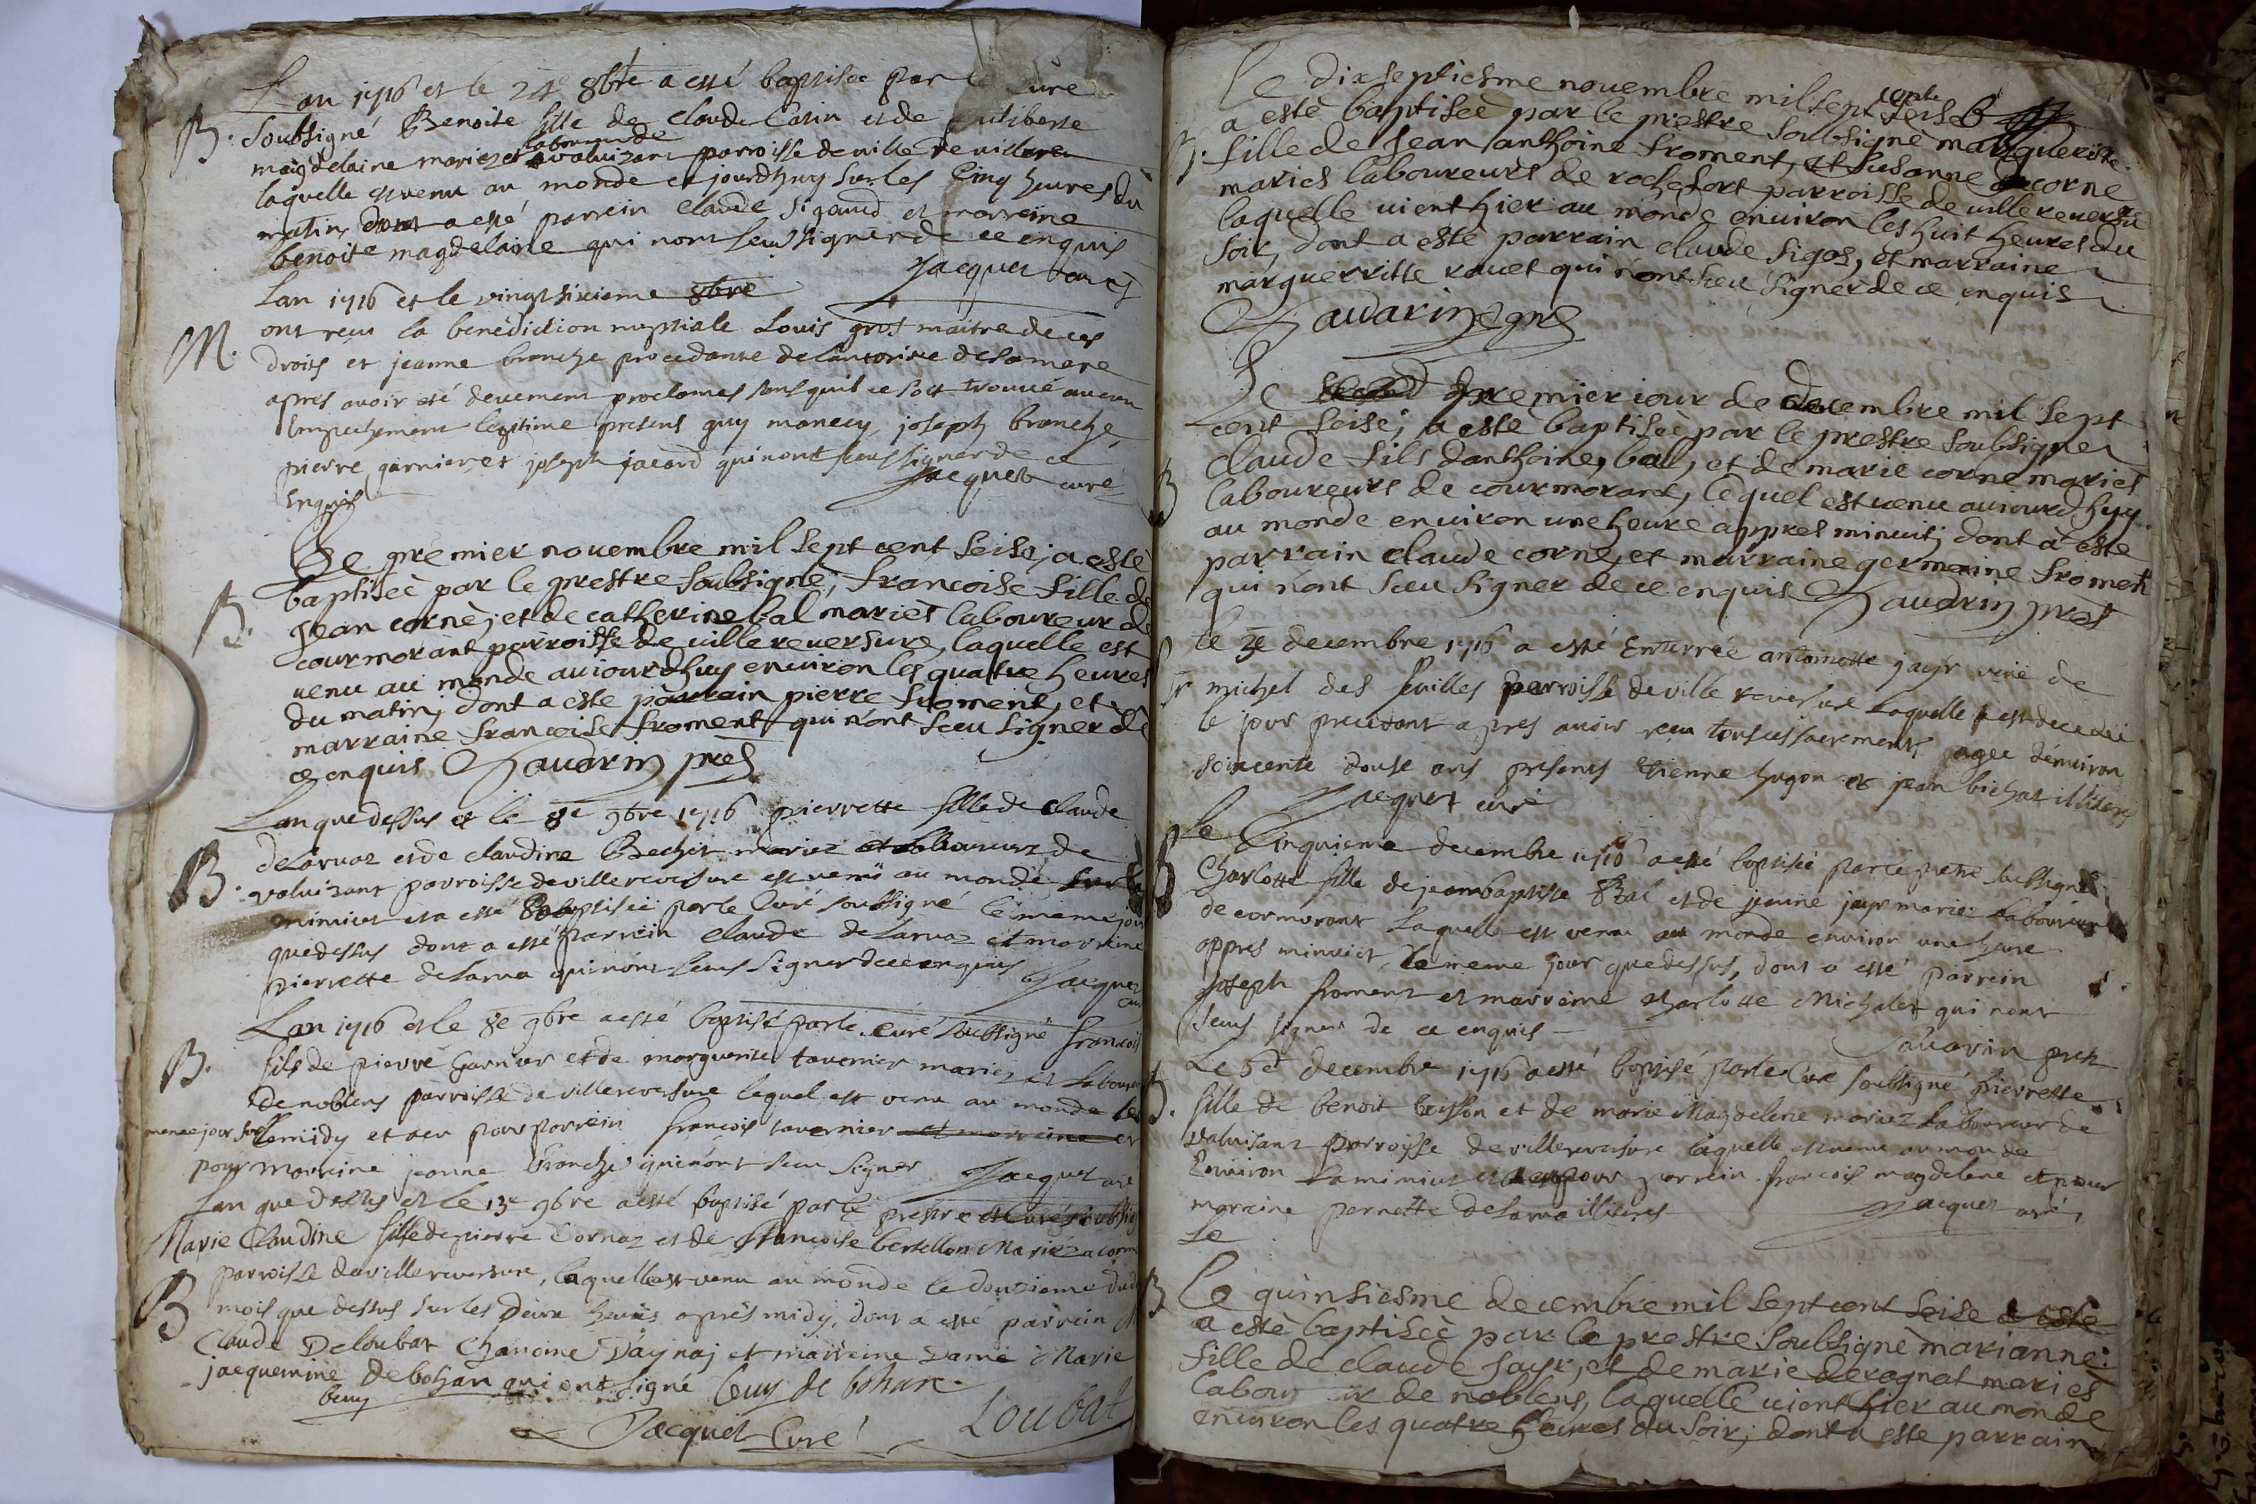 Lan 1716 et le 24e 8bre a esté baptisée par le Curé
B. soubsigné Benoite fille de Claude Catin et de
magdelaine mariez et laboureurs de valuisant parroisse de ville reversure
laquelle est venu au monde ce jourdhuy sur les Cinq heures du
matin dont a esté parrein Claude Sigaud et marreine
benoite magdelaine qui nont sceu signer de ce enquis
Jacquet curé
Lan 1716 et le vingt sixieme 8bre
M. ont reçu la benediction nuptiale Louis maitre de ces
droits et jeanne branche procedante de lautorité de sa mere
apres avoir eté deuement proclames sans quil ce soit trouvé aucun
Empechement legitime presens guy monecy, joseph branche,
pierre garnier et joseph jacard qui nont sceu signer de ce
Enquis Jacquet curé
Le premier novembre mil sept cent seise, a esté
B. baptiseè par le prestre soubsignè, francoise fille de
Jean cornè, et de catherine bal mariès laboureur de
courmorant parroisse de villereversure, laquelle est
venu au monde auiourdhuy environ les quatre heures
du matin, dont a este parrain pierre froment, et
marraine francoise froment qui n'ont sceu signer de
ce enquis Savarin pres
Lan que dessus et le 8e 9bre 1716 pierrette fille de Claude
B. de Larnaz et de claudine Bechet mariez et laboureurs de
valuisant parroisse de villereversure est venu au monde sur la
minuict et a esté baptiseë par le Curé soussigné le meme jour
que dessus dont a esté parrein Claude de Larnaz et marreine
pierrette de Larna qui nont sceus signer de ce enquis Jacquet
curé
Lan 1716 et le 8e 9bre a esté baptisé par le curé soubsigné francois
B. fils de pierre Garnier et de marguerite tavernier mariez et Laboureurs
de noblens parroisse de villereversure lequel est venu au monde le
meme jour sur Lemidy et a eu pour parrein francois tavernier et marreine et
pour marreine jeanne branche qui n'ont sceu signer Jacquet curé
Lan que dessus et le 13e 9bre a esté baptisé par le prestre et curé soubsig
Marie Claudine fille de pierre Cornaz et de francoise bertellon Mariez a corm
B parroisse de villereversure, laquelle est venu au monde le douzieme dud
mois que dessus sur les Deux heures aprês midy, dont a esté parrein M
Claude Deloubat Chanoine Daynaj et marreine Dame Marie
jacquemine de bohan qui ont signé beuy de bohan
beuy
Jacquet Curé Loubat
Le dixseptiesme novembre mil sept cents seise
a estè baptiseè par le prestre soubsignè marguerite
B. fille de Jean anthoine froment, et susanne corne
mariés laboureurs de rochefort parroisse de villereversure
laquelle vient hier au monde environ les huit heures du
soir, dont a este parrain claude sigos, et marraine
marguerritte rouet qui n'ont sceu signer de ce enquis
Savarin pres
Le second premier iour de decembre mil sept
cent seise, a estè baptiseè par le prestre soubsigner
B claude fils danthoine, bal, et de marie corne mariés
laboureurs de courmorant, lequel est venu auiourdhuy
au monde environ une heure appres minuit, dont à este
parrain claude corne, et marraine germaine froment
qui n'ont sceu signer de ce enquis Savarin pres
Le 3e decembre 1716 a esté Enterrée antoinette jayr veve de
Sr michel des feuilles parroisse de ville reversure Laquelle est decedeë
le jour precedant apres avoir receu tous ces sacrements, agée d'environ
soixcente douse ans presents Etienne hugon et jean bichat illiteres
Jacquet curé
Le Cinquieme decembre 1716 a esté baptiseé par le pretre subsigné
B Charlotte fille de jean baptiste Bal et de jeanne jayr mariez Laboureurs
de cormorant Laquelle est venu au monde environ une heure
appres minuict Le meme jour que dessus, dont a esté parrein
Joseph froment et marreine charlotte Michalet qui nont
sceus signer de ce enquis —
Savarin pretr
Le 6e decembre 1716 a esté baptisé par le Curé soubsigné pierrette
B. fille de benoit brisson et de marie Magdelene mariez Laboureur de
valuisant Parroisse de villereversure laquelle est venu au monde
Environ La minuict et a eu pour parrein francois magdelene et pour
marreine pernette de Larna illiteres Jacquet curé
Le
B Le quinsiesme decembre mil sept cent seise a esté
a estè baptiseè par le prestre soubsignè marianne
fille de claude Jayr, et de marie derognat mariès
laboureur de noblens, laquelle vient hier au monde
environ les quatre heures du soir, dont a este parrain